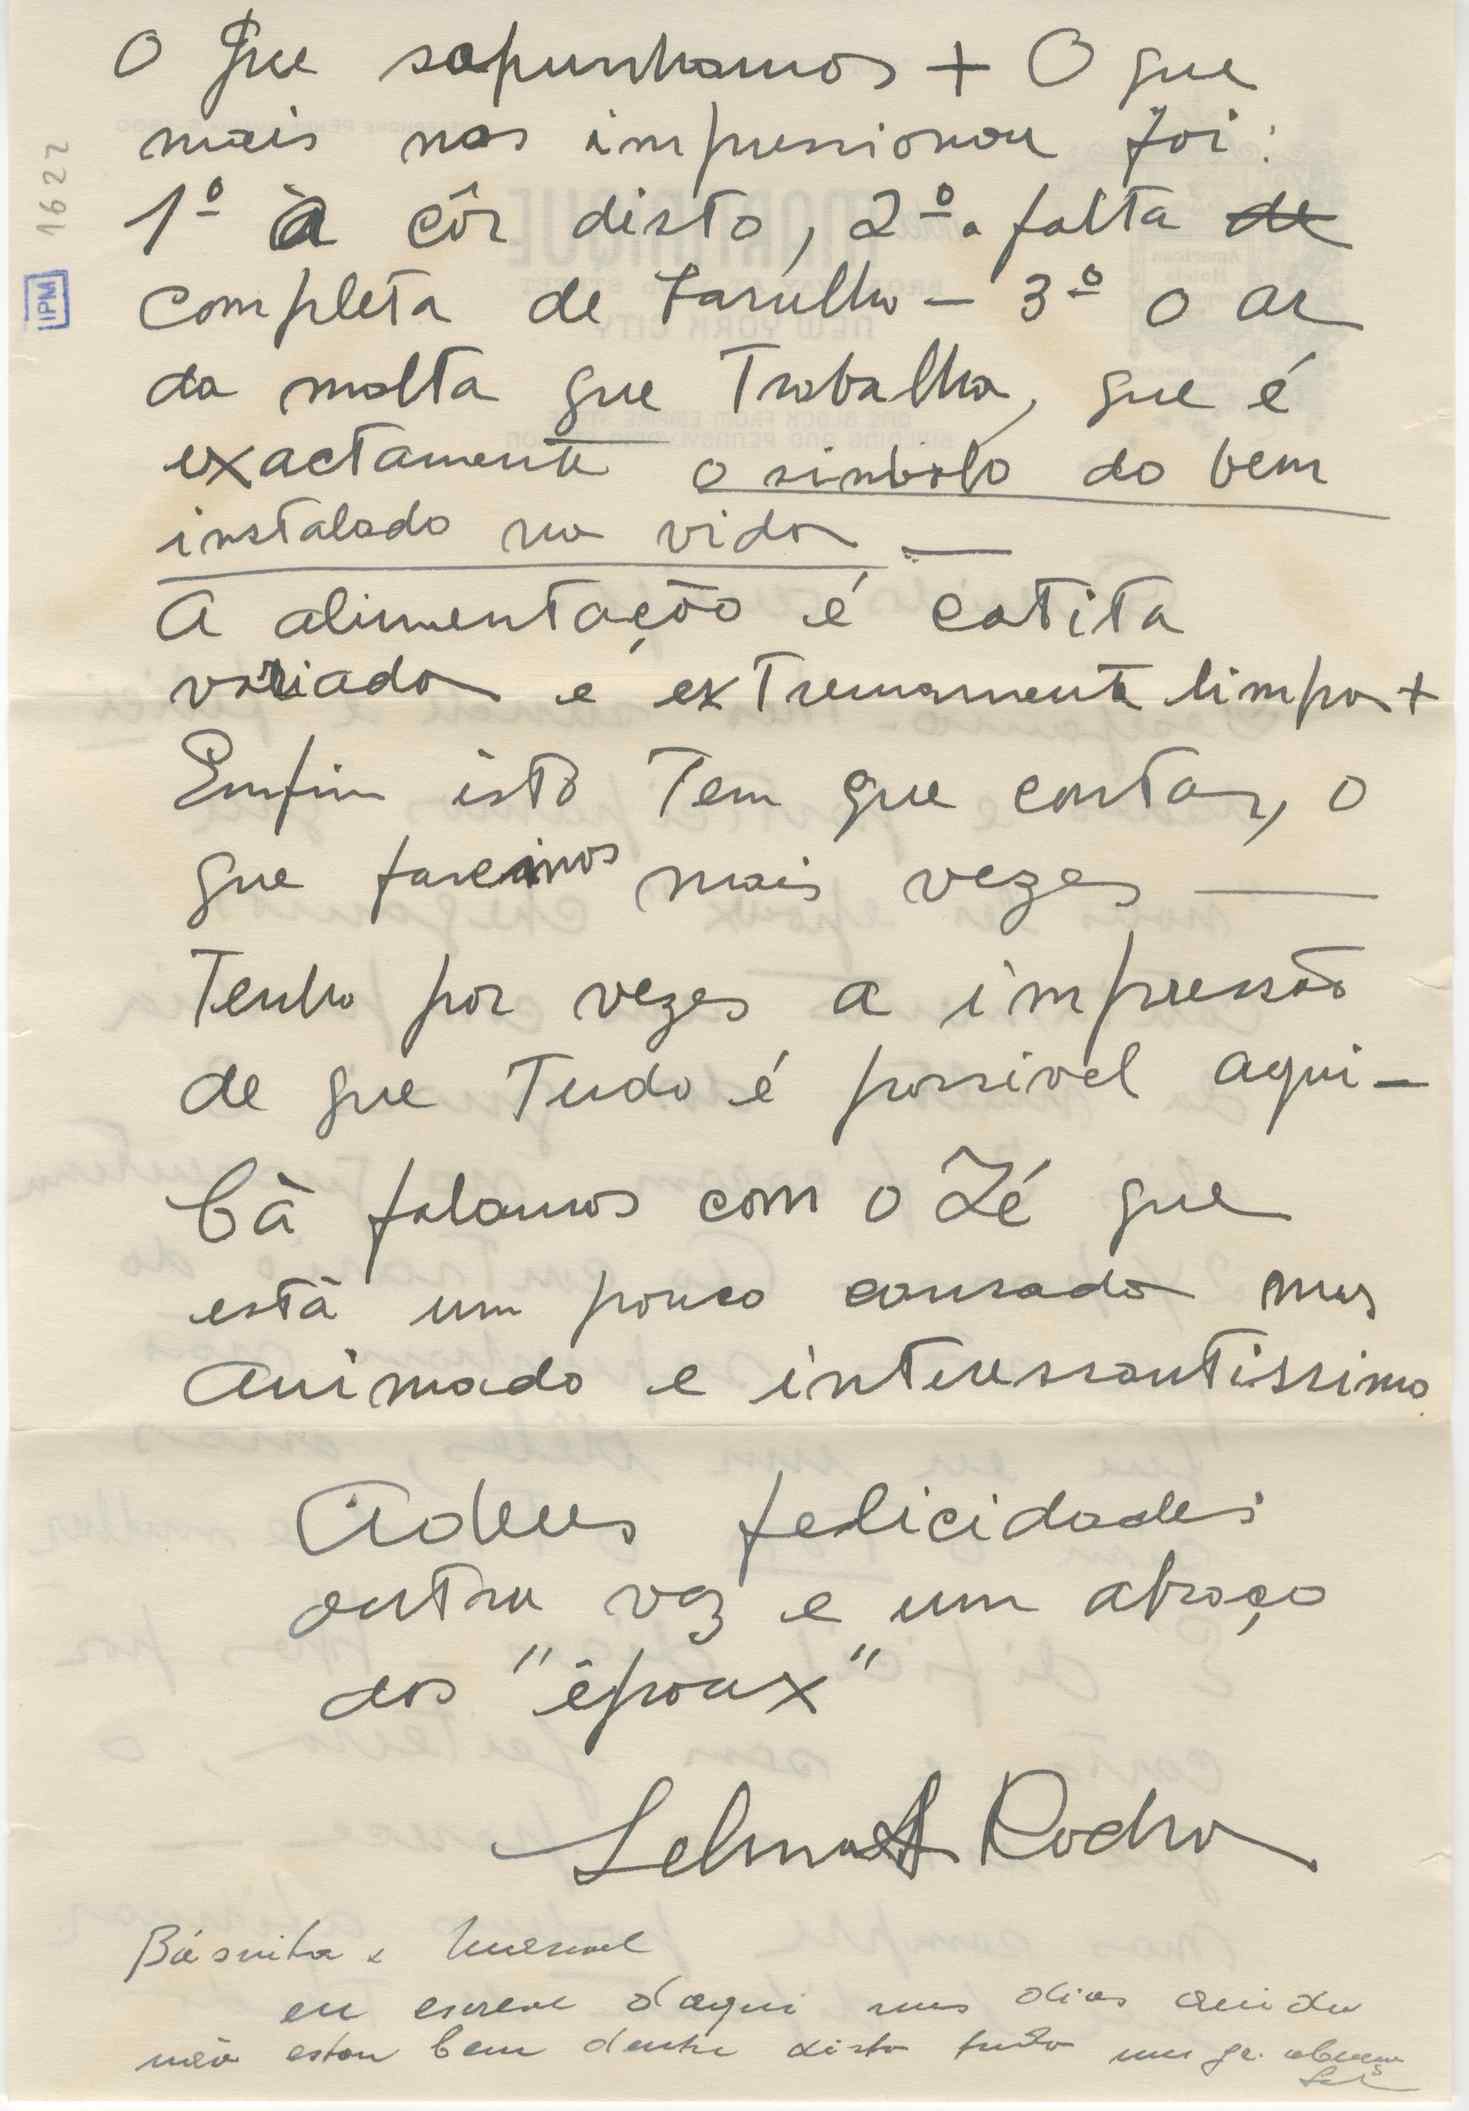 O que supunhamos + O que
mais nos impressionou foi:
1º a côr disto, 2º a falta de
completa de barulho — 3º o ar
da malta que Trabalha, que é
exactamente o simbolo do bem
instalado na vida —
A alimentação é catita
variada e extremamente limpa +
Emfim isto Tem que contar, o
que faremos mais vezes —
Tenho por vezes a impressão
de que Tudo é possivel aqui —
Cá falamos com o Zé que
está um pouco cansado mas
animado e interessantissimo
Adeus felicidades
outra vez e um abraço
dos "époux"
Selma Pedro
e Manuel
eu escrevo daqui uns dias ainda
não estou bem dentro disto tudo um gr. abraço
1622
IPM